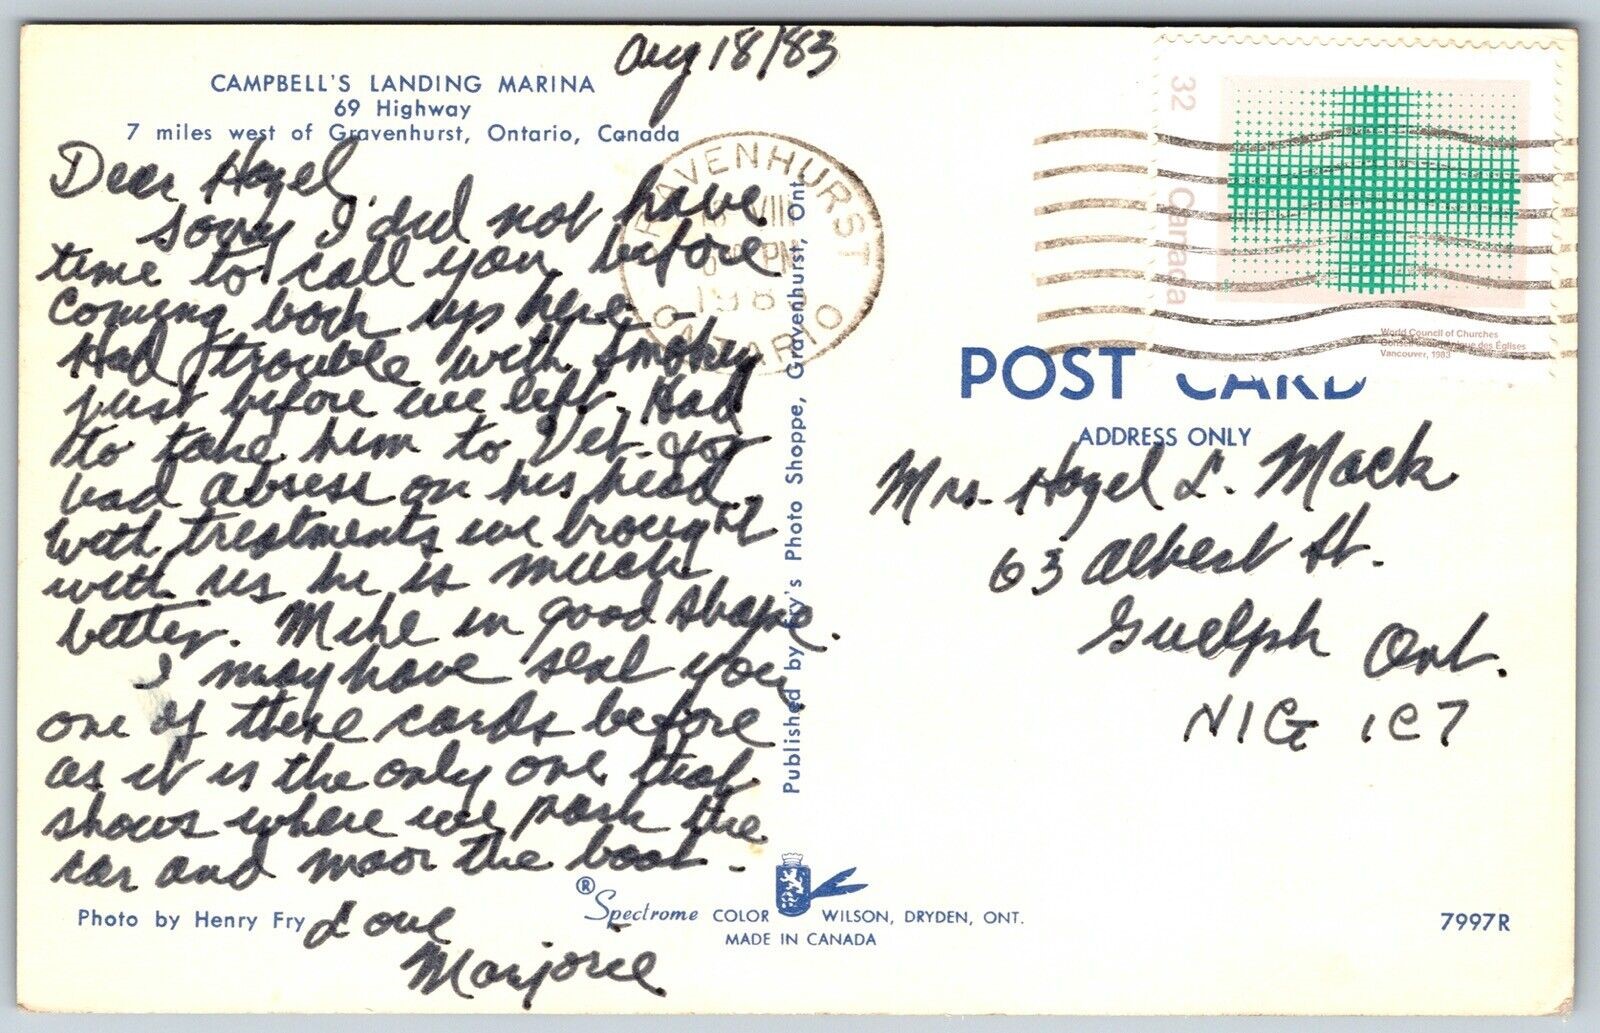 Aug 18/83
CAMPBELL'S LANDING MARINA
69 Highway
7 miles west of Gravenhurst, Ontario, Canada
Dear Hazel,
Sorry I did not have
time to call you before
coming back up here -
Had trouble with Smokey
just before we left. Had
to take him to Vet. for
bad absess on his head,
with treatments we brought
with us he is much
better. Mike in good shape.
I may have sent you
one of these cards before
as it is the only one that
shows where we park the
car and moor the boat -
Love
Marjorie
Photo by Henry Fry
Published by Fry's Photo Shoppe, Gravenhurst, Ont.
® Spectrome COLOR WILSON, DRYDEN, ONT.
MADE IN CANADA
7997R
RAVENHURST
VIII
PM
198
ONTARIO
32
Canada
World Council of Churches
Conseil des Églises
Vancouver, 1983
POST CARD
ADDRESS ONLY
Mrs. Hazel L. Mack
63 Albert St.
Guelph Ont.
N1G 1C7